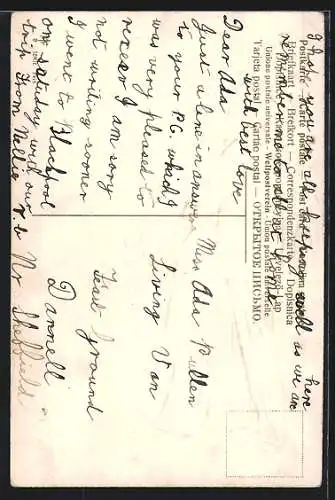 I hope you are all keeping well as we are here
Postkarte — Carte postale — Post card
Brevkort — Correspondenzkarte — Dopisnica
Unions postale universelle — Weltpostverein — Union postale universelle.
Tarjeta postal — Cartão postal — ОТКРЫТОЕ ПИСЬМО.
with best love
Dear Ada
Just a line in answer
to your P.C. which I
was very pleased to
receer I am sory
not writing sooner
I went to Blackpool
on satuday with our
trip from Nellie
Miss Ada Pullen
Living Van
Feast Ground
Darnell
Nr Sheffield